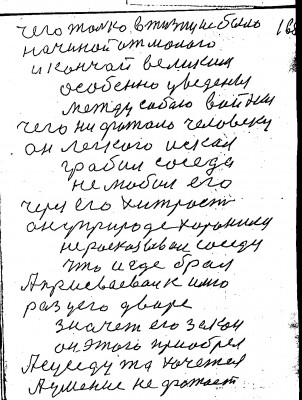 чего толко в жизни не было 168
начиной от малого
и кончай великим
особенно уведеня
между сабою войны
чего ни фатало человеку
он легкого искал
грабил соседа
не любил его
через его хитрост
он у природе хоронили
не расказывал соседу
что и где брал
А присваевал к
раз у его дворе
значет его закон
он этого приобрел
А суседу та хочетея
А умение не фатает